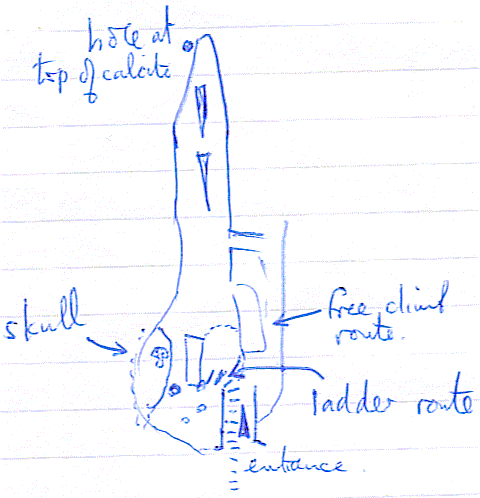 hole at
top of calcite
skull
free climb
route.
ladder route
entrance.